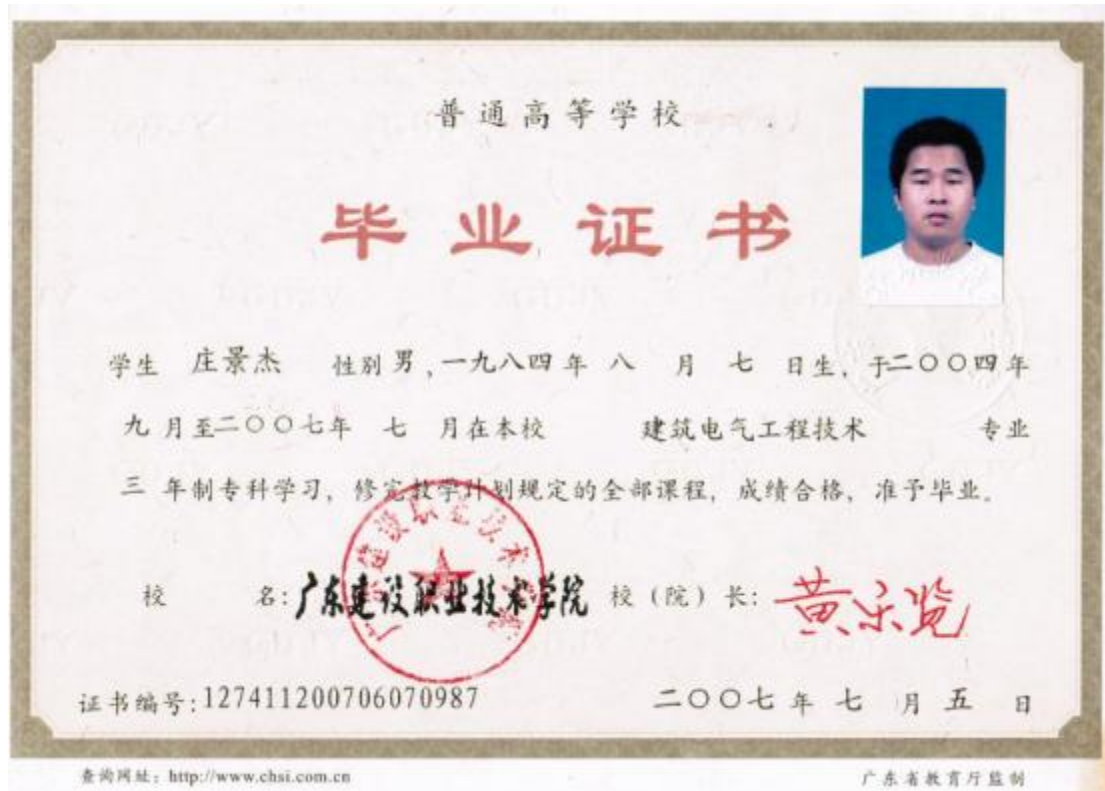 普通高等学校
毕业证书
学生 庄景杰 性别 男，一九八四年 八 月 七 日生，于二〇〇四年
九 月至二〇〇七年 七 月在本校 建筑电气工程技术 专业
三 年制专科学习，修完教学计划规定的全部课程，成绩合格，准予毕业。
校 名：广东建设职业技术学院 校（院）长：黄乐览
证书编号：127411200706070987 二〇〇七年 七 月 五 日
查询网址：http://www.chsi.com.cn 广东省教育厅监制